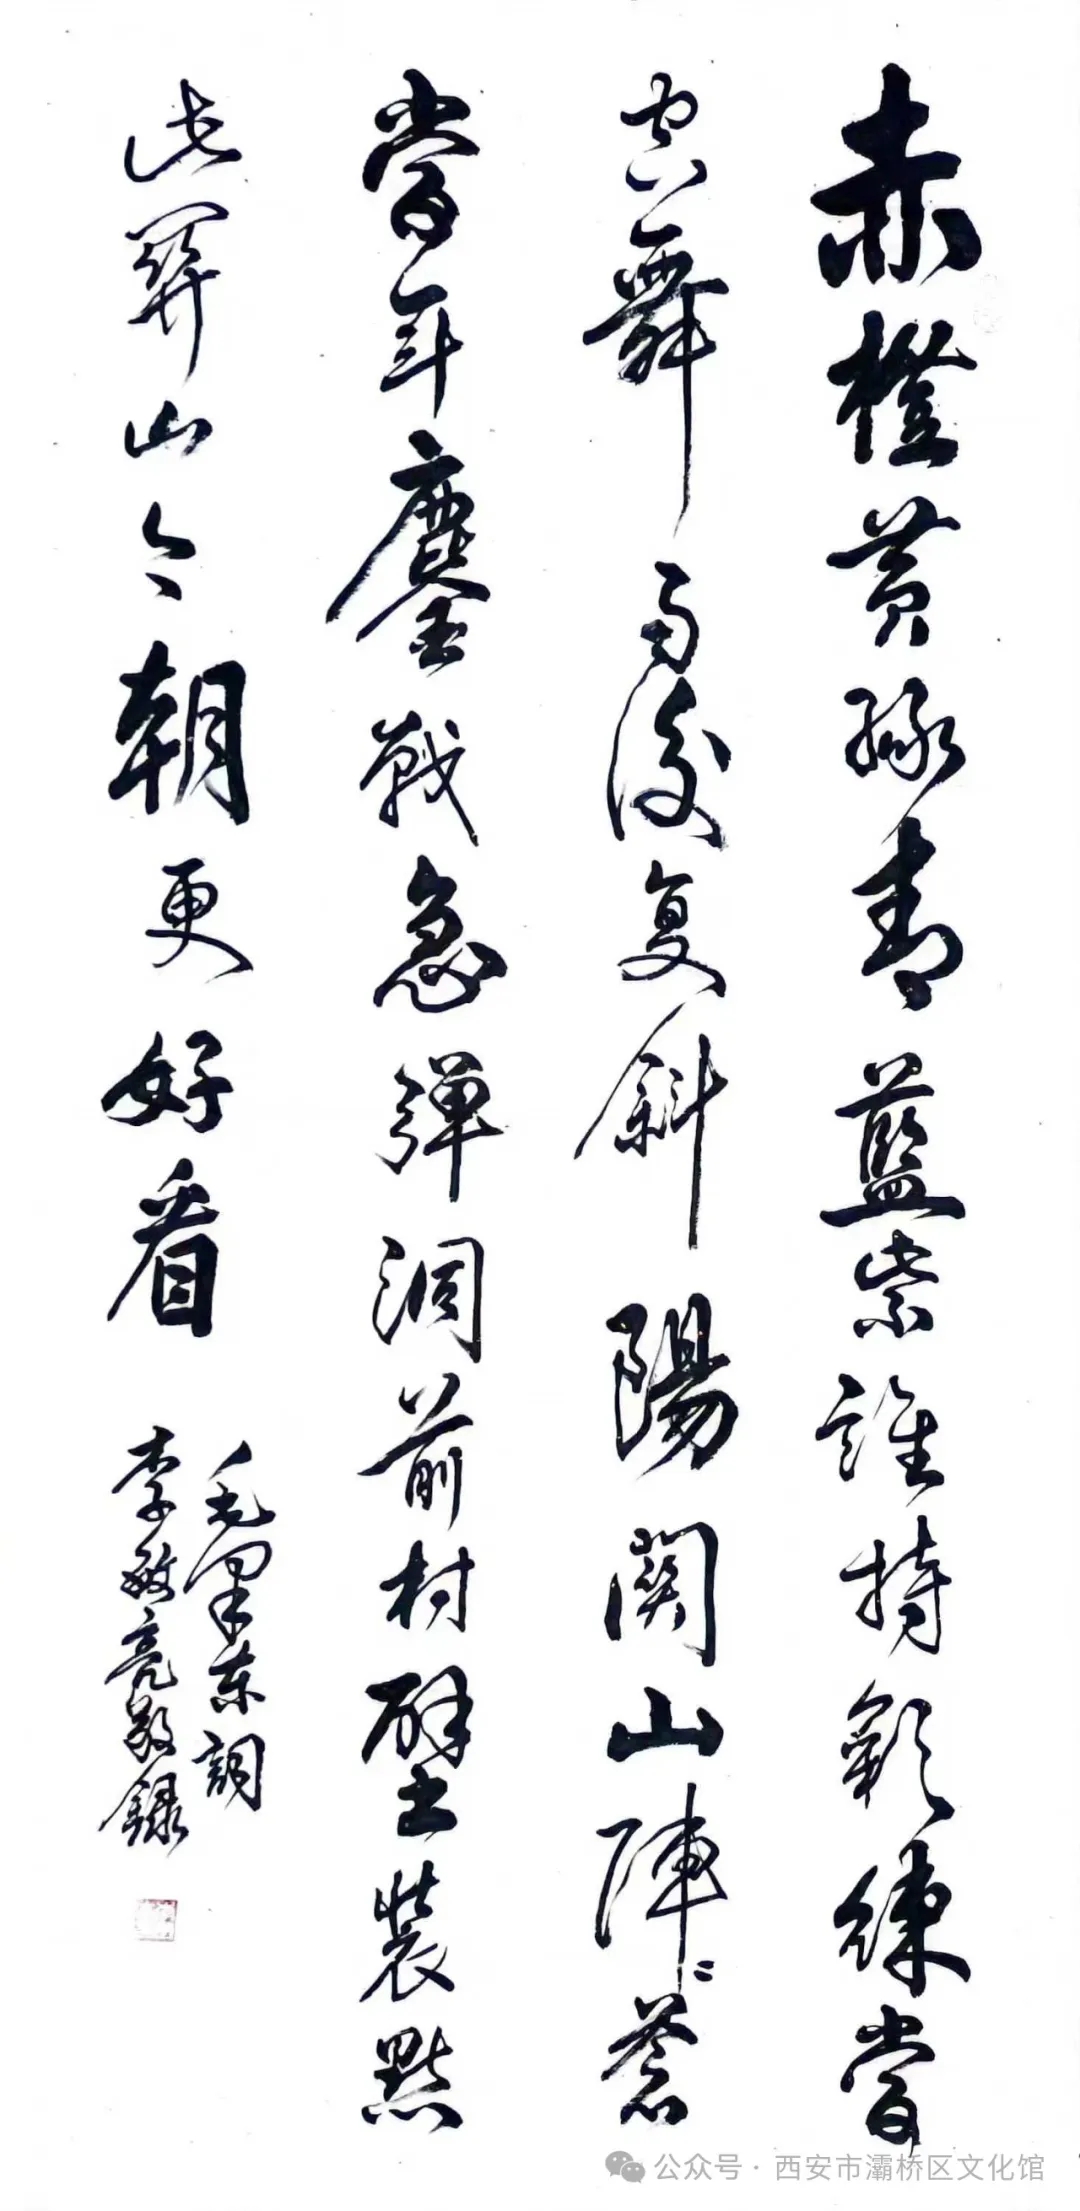 赤橙黄綠青藍紫誰持彩練當
空舞雨後复斜陽關山陣〻蒼
當年鏖戰急彈洞前村壁裝點
此關山今朝更好看
毛澤東詞
李敏亮敬錄
公众号 · 西安市灞桥区文化馆